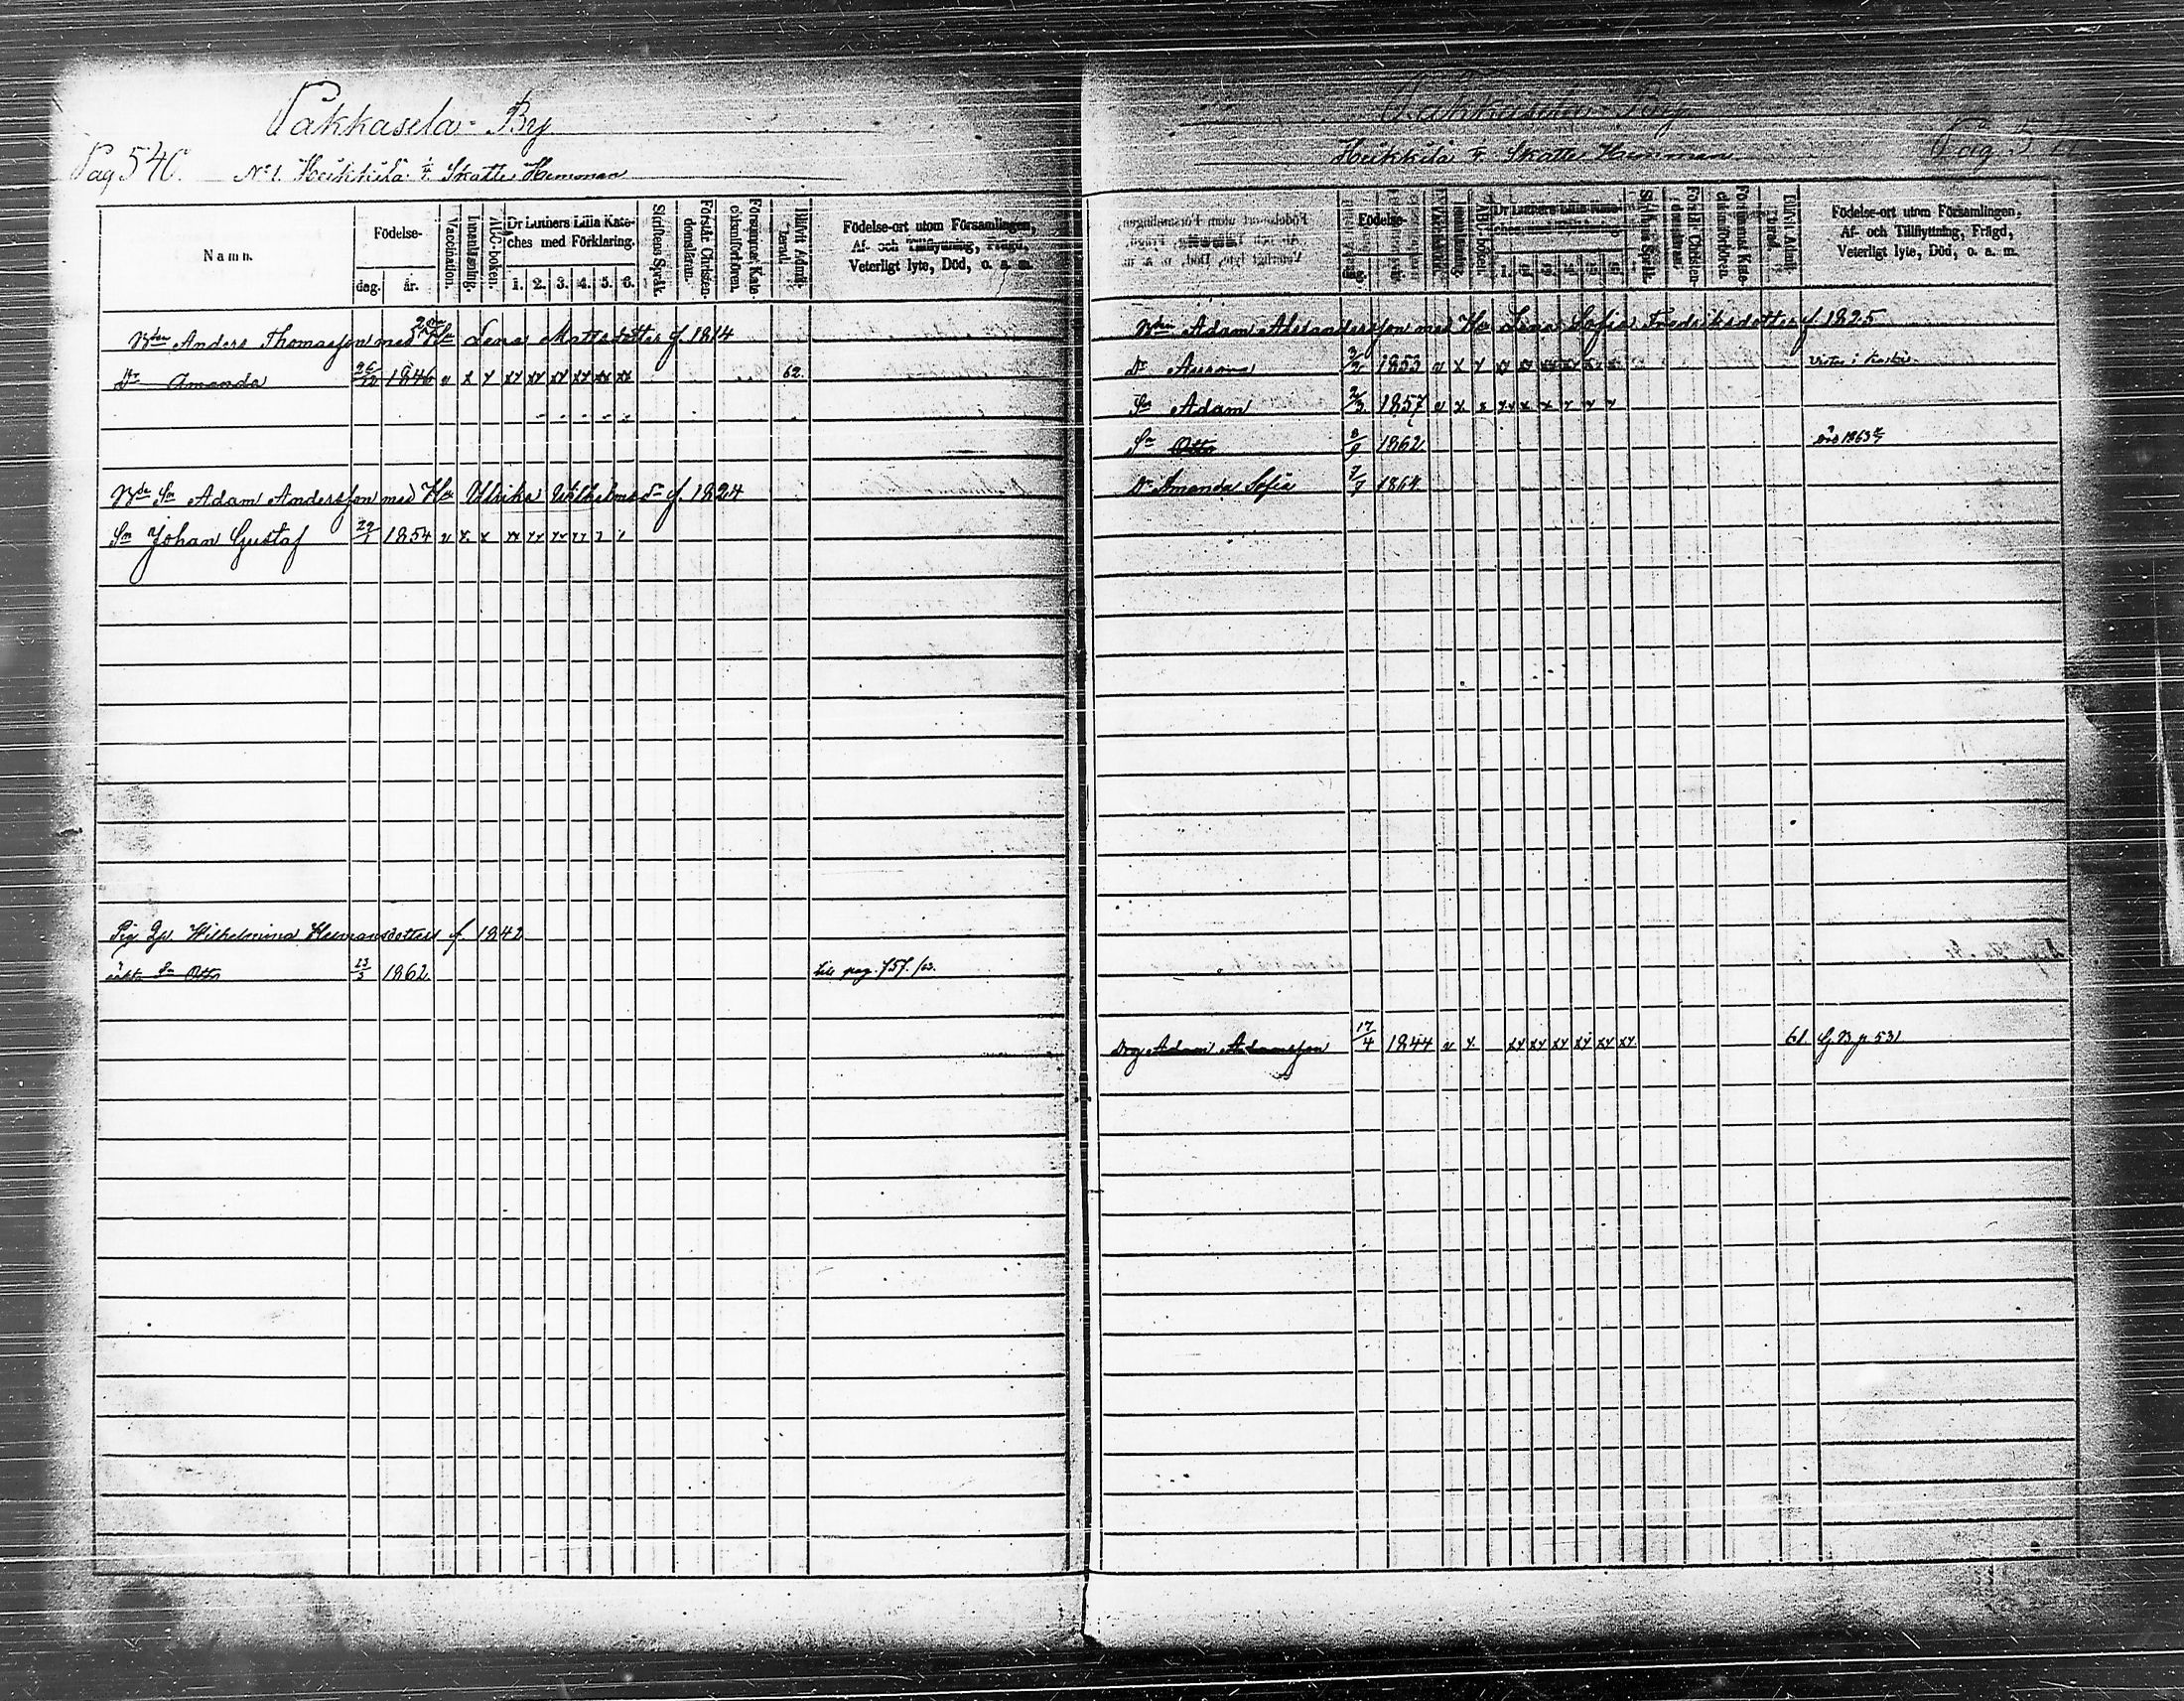 Pakkasela By
Pag 540.
No 1. Heikkilä Skatte Hemman
Namn.
Födelse-
dag.
år.
Vaccination.
Innanläsning.
ABC-boken.
Dr Luthers Lilla Kate-
ches med Förklaring.
1. 2. 3. 4. 5. 6.
Skriftens Språk.
Förstår Christen-
domsläran.
Försummat Kate-
chismiförhören.
Blifvit Admit-
terad.
Födelse-ort utom Församlingen,
Af- och Tillflyttning, Frägd,
Veterligt lyte, Död, o. a. m.
Anders Thomasson med Hu Lena Mattsdotter f. 1814
Dr Amanda 26/12 1846 v x x xx xx xx xx xx xx 62.
Sn Adam Andersson med Hu Ulrika Wilhelmsdr f. 1824
Sn Johan Gustaf 29/1 1854 v x x xx xx xx xx x x
Pig Wilhelmina Hermansdotter f. 1842
oäkta Sn Otto 13/3 1862 till pag. 757. /63.
Pakkasela By
Pag
Heikkilä Skatte Hemman
Födelse-
Vaccination.
Innanläsning.
ABC-boken.
Dr Luthers Lilla Kate-
ches med Förklaring.
1. 2. 3. 4. 5. 6.
Skriftens Språk.
Förstår Christen-
domsläran.
Försummat Kate-
chismiförhören.
Blifvit Admit-
terad.
Födelse-ort utom Församlingen,
Af- och Tillflyttning, Frägd,
Veterligt lyte, Död, o. a. m.
Adam med Hu Lena Sofia Fredriksdotter f. 1825
Dr 1853 v x x
Sn Adam 2/3 1857 v x x xx x x x x x
Sn Otto 8/9 1862 död 1863
Dr Amanda Sofia 7/7 1864
Drg Adam Adamsson 17/4 1844 v x xx xx xx xx xx xx 61. G B p 531